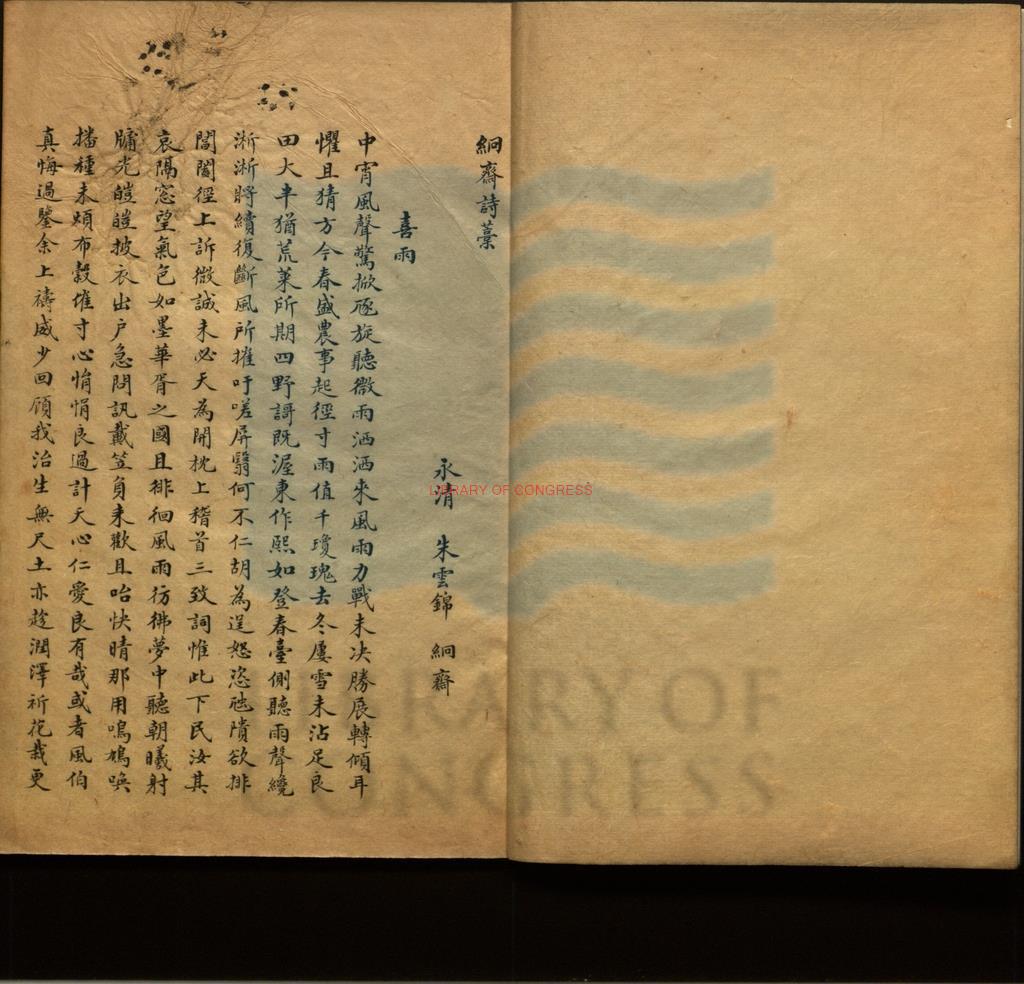 絅齋詩藁
永清 朱雲錦 絅齋
喜雨
中宵風聲驚掀豗旋聽微雨洒洒來風雨力戰未决勝展轉傾耳
懼且猜方今春盛農事起徑寸雨值千瓊瑰去冬屢雪未沾足良
田大半猶荒萊所期四野謌既渥東作熙如登春臺側聽雨聲纔
淅淅將續復斷風所摧吁嗟屏翳何不仁胡為逞怒恣虺隤欲排
閶闔徑上訴微誠未必天為開枕上稽首三致詞惟此下民汝其
哀隔窓望氣色如墨華胥之國且徘徊風雨彷彿夢中聽朝曦射
牖光皚皚披衣出户急問訊戴笠負耒歡且咍快晴那用鳴鳩喚
播種未煩布穀催寸心悁悁良過計天心仁愛良有哉或者風伯
真悔過鑒余上禱威少回顧我治生無尺土亦趁潤澤祈花栽更
LIBRARY OF CONGRESS
LIBRARY OF
CONGRESS